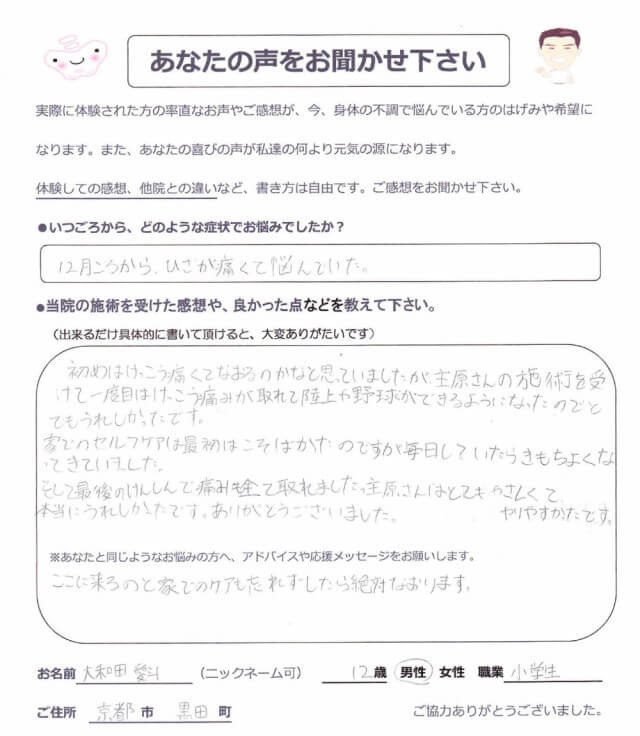 あなたの声をお聞かせ下さい
実際に体験された方の率直なお声やご感想が、今、身体の不調で悩んでいる方のはげみや希望に
なります。また、あなたの喜びの声が私達の何より元気の源になります。
体験しての感想、他院との違いなど、書き方は自由です。ご感想をお聞かせ下さい。
●いつごろから、どのような症状でお悩みでしたか？
12月ころから、ひざが痛くて悩んでいた。
●当院の施術を受けた感想や、良かった点などを教えて下さい。
（出来るだけ具体的に書いて頂けると、大変ありがたいです）
初めはけっこう痛くてなおるのかなと思っていましたが、主原さんの施術を受
けて一度目はけっこう痛みが取れて陸上や野球ができるようになったのでと
てもうれしかったです。
家でのセルフケアは最初はこそばかたのですが毎日していたらきもちよくな
ってきていました。
そして最後のけんしんで痛みも全て取れました。主原さんはとてもやさしくて、
本当にうれしかたです。ありがとうございました。 やりやすかたです。
※あなたと同じようなお悩みの方へ、アドバイスや応援メッセージをお願いします。
ここに来るのと家でのケアも忘れずしたら絶対なおります。
お名前 大和田 愛斗 （ニックネーム可） 12歳 男性 女性 職業 小学生
ご住所 京都市 黒田町 ご協力ありがとうございました。